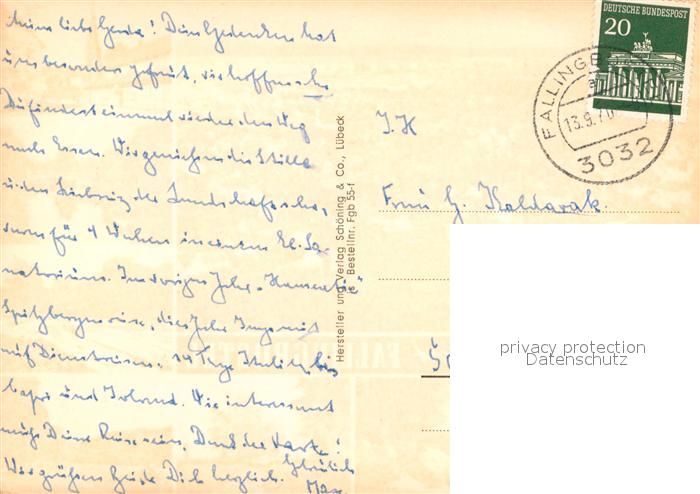 Meine liebe Gerda! Dein Gedenken hat
uns besonders gefreut, wir hoffen sehr
Du findest einmal wieder den Weg
nach Essen. Wir genießen die Stille
u. den Liebreiz der Landschaft
für 4 Wochen in einem
Im vorigen Jahr "Hanseatic"
Spitzbergenreise, dies Jahr
auf Dienstreisen, 14 Tage bis
Capri und Wie interessant
muß Deine Reise sein, Dank der Karte!
Wir grüßen beide Dich herzlich.
Max
Hersteller und Verlag Schöning & Co., Lübeck
Bestellnr. Fgb 55-f
DEUTSCHE BUNDESPOST
20
FALLINGB
13.9.70
3032
Frau G. Kaldarak
privacy protection
Datenschutz